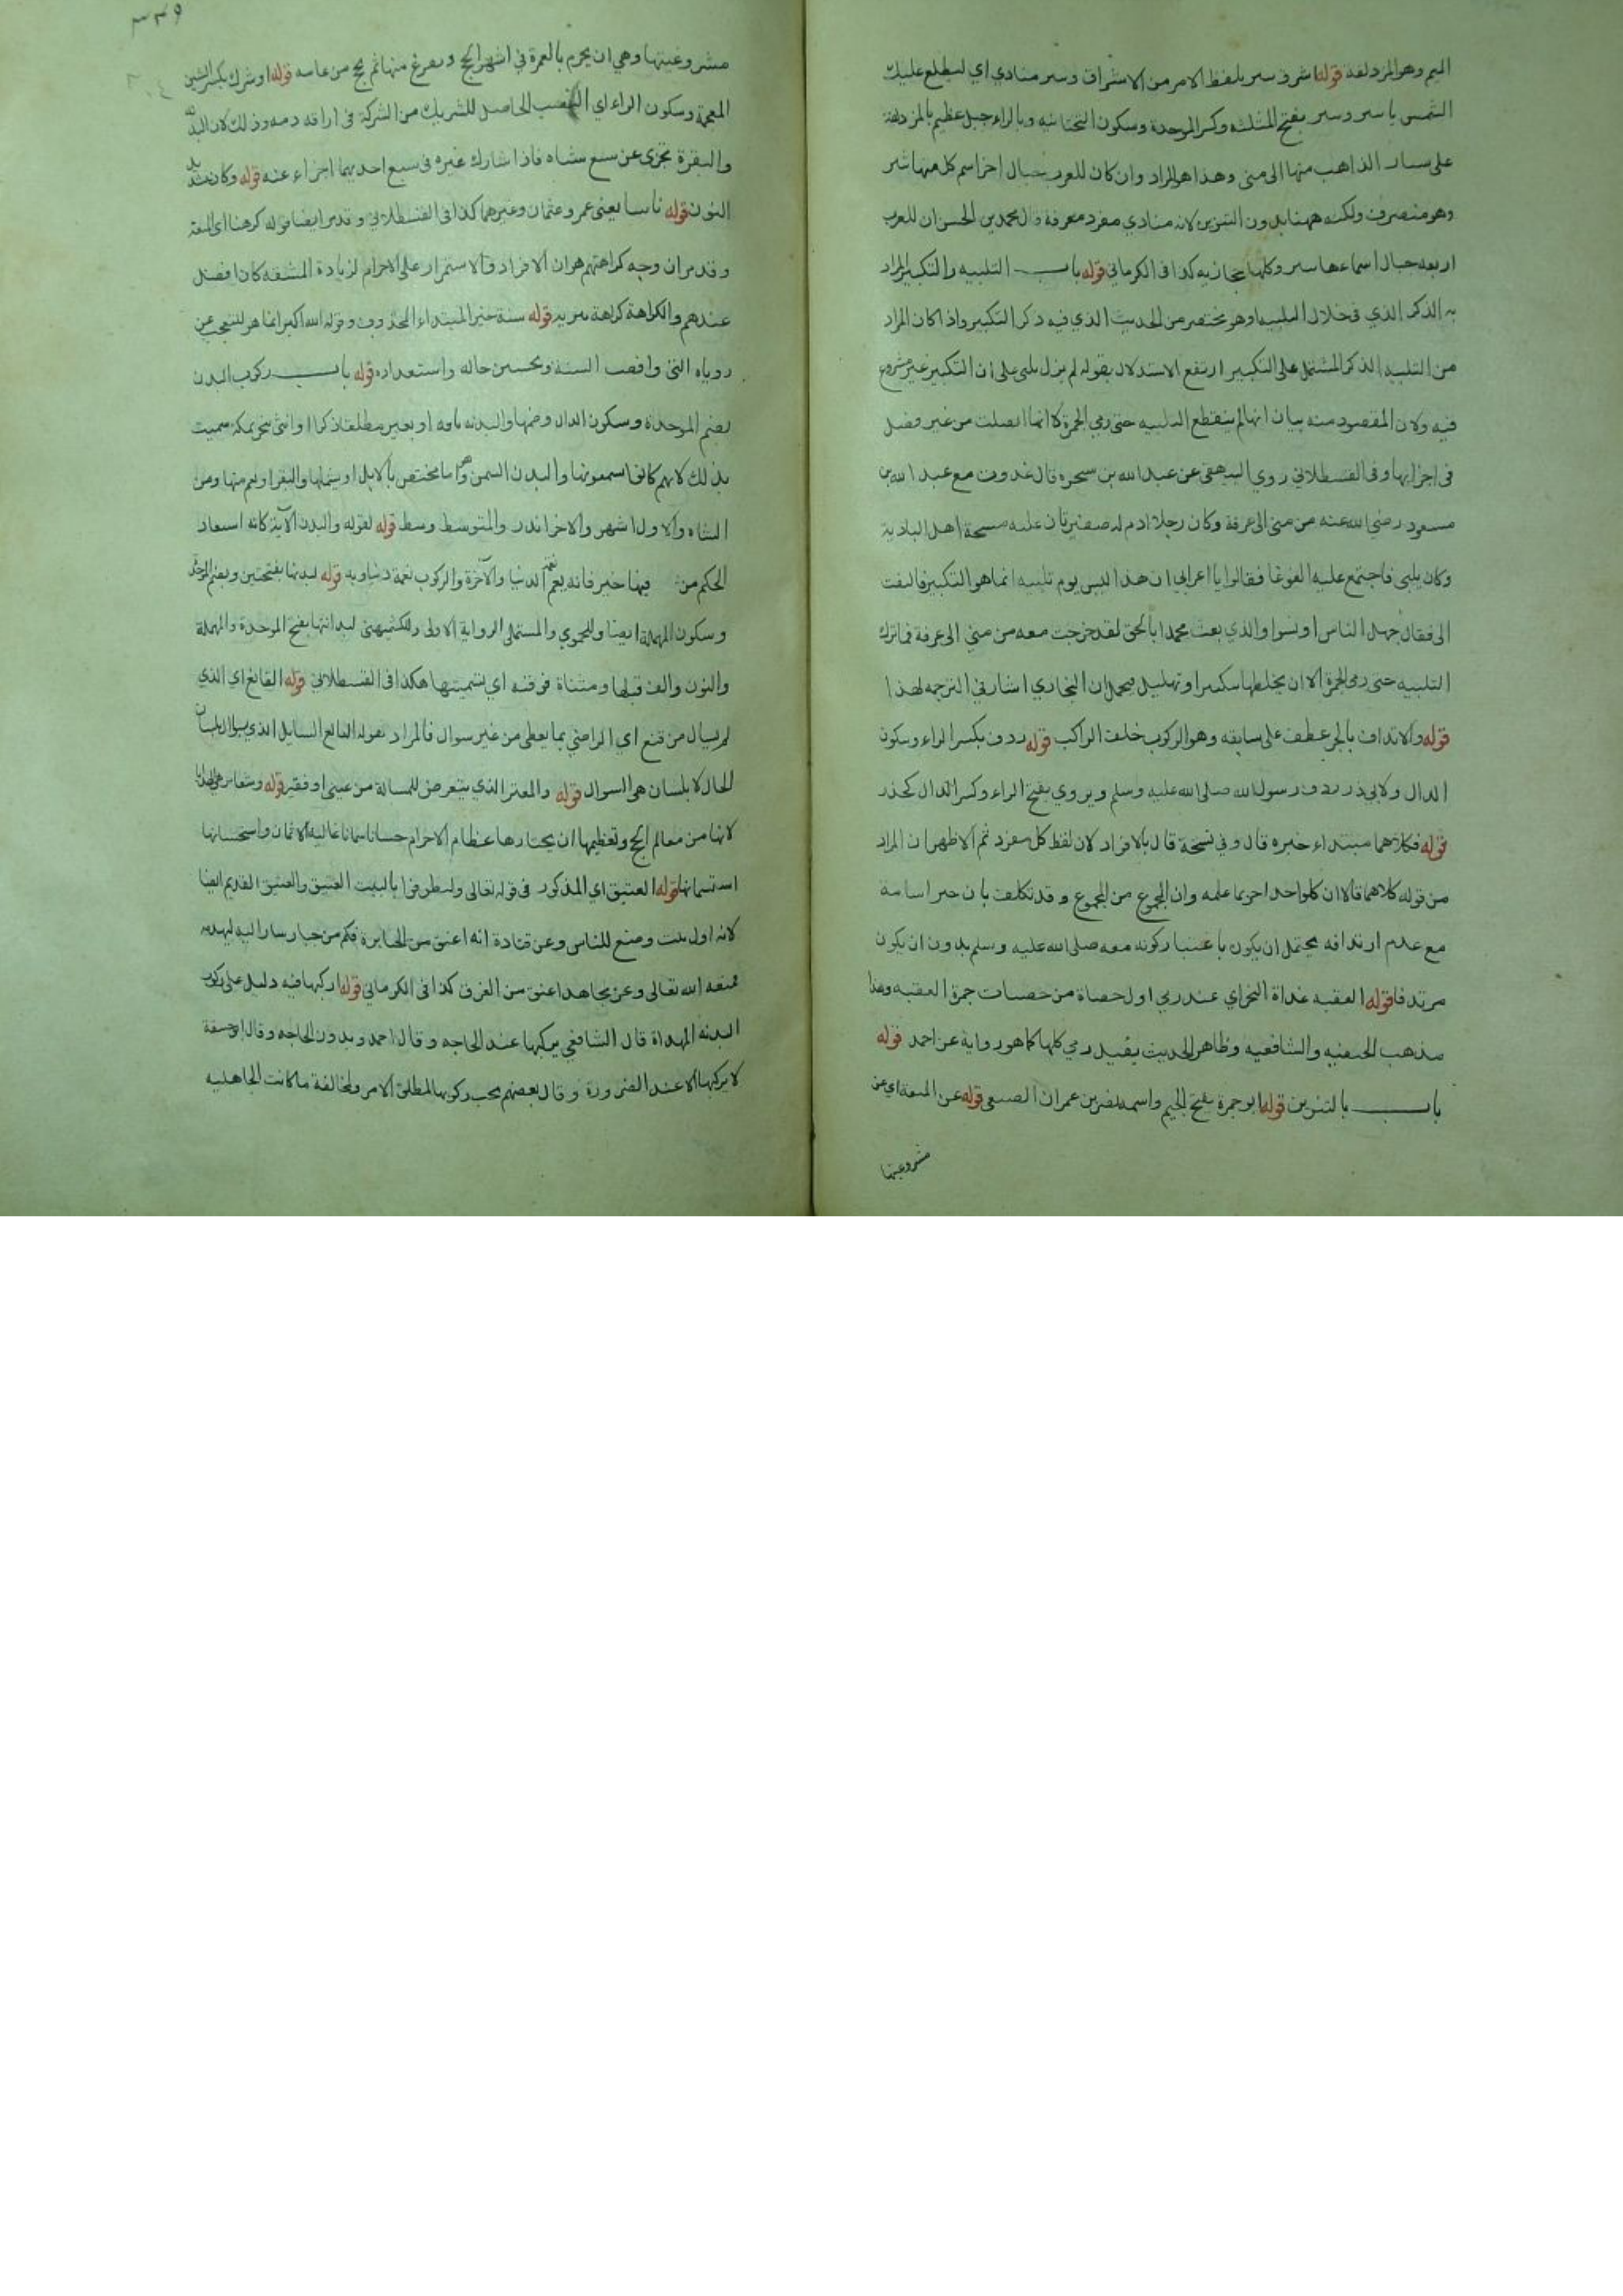 الميم وهو المزدلفة قوله اشرق ثبير بلفظ الامر من الاشراق وثبير منادي اي لتطلع عليك
الشمس يا ثبير وثبير بفتح المثلثه وكسر الموحدة وسكون التحتانيه وبالراء جبل عظيم بالمزدلفة
على يسار الذاهب منها الى منى وهذا هو المراد وان كان للعرب جبال اخر اسم كل منها ثبير
وهو منصرف ولكنه ههنا بدون التنوين لانه منادي مفرد معرفة قال محمد بن الحسن ان للعرب
اربعه جبال اسماءها ثبير وكلها حجازيه كذا في الكرماني قوله باب التلبيه والتكبير المراد
به الذكر الذي في خلال التلبيه او هو مختصر من الحديث الذي فيه ذكر التكبير واذا كان المراد
من التلبيه الذكر المشتمل على التكبير ارتفع الاستدلال بقوله لم يزل يلبى على ان التكبير غير مشروع
فيه ولان المقصود منه بيان انها لم ينقطع التلبيه حتى رمي الجمرة كانها اتصلت من غير فصل
في اجزائها وفي القسطلاني روي البيهقي عن عبد الله بن سخبره قال غدوت مع عبد الله بن
مسعود رضي الله عنه من منى الى عرفة وكان رجلا ادم له ضفيرتان عليه مسحة اهل البادية
وكان يلبي فاجتمع عليه الغوغا فقالوا يا اعرابي ان هذا ليس يوم تلبيه انما هو التكبير فالتفت
الى فقال جهل الناس او نسوا والذي بعث محمدا بالحق لقد خرجت معه من منى الى عرفة فما ترك
التلبيه حتى رمى الجمرة الا ان يخلطها بتكبير او تهليل فيحمل ان البخاري اشار في الترجمه لهذا
قوله والارتداف بالجر عطف على سابقه وهو الركوب خلف الراكب قوله ردف بكسر الراء وسكون
الدال ولابي ذر ردف رسول الله صلى الله عليه وسلم ويروي بفتح الراء وكسر الدال كحذر
قوله فكلاهما مبتداء خبره قال وفي نسخة قال بالافراد لان لفظ كل مفرد ثم الاظهر ان المراد
من قوله كلاهما قالا ان كلواحد اخبر بما علمه وان المجموع من المجموع وقد تكلف بان خبر اسامة
مع عدم ارتدافه يحتمل ان يكون باعتبار كونه معه صلى الله عليه وسلم بدون ان يكون
مرتدفا قوله العقبه غداة النحر اي عند رمي اول حصاة من حصيات جمرة العقبه وهذا
مذهب الحنفيه والشافعيه وظاهر الحديث يفيد رمي كلها كما هو رواية عن احمد قوله
باب بالتنوين قوله ابو جمرة بفتح الجيم واسمه نصر بن عمران الضبعى قوله عن المتعة اي عن
مشروعيتها
٣٣٩
مشروعيتها وهي ان يحرم بالعمرة في اشهر الحج ويفرغ منها ثم يحج من عامه قوله او شرك بكسر الشين
المعجمة وسكون الراء اي النصيب الحاصل للشريك من الشركة في اراقه دمه وذلك لان البدنة
والبقرة تجزى عن سبع شياه فاذا شارك غيره في سبع احديهما اجزاء عنه قوله وكان بتشديد
النون قوله ناسا يعنى عمر وعثمان وغيرهما كذا في القسطلاني وقد مر ايضا قوله كرهها اي المتعة
وقد مر ان وجه كراهتهم هو ان الافراد والاستمرار على الاحرام لزيادة المشقه كان افضل
عندهم والكراهة كراهة تنزيه قوله سنة خبر المبتداء المحذوف وقوله الله اكبر انما هو للتعجب عن
روياه التى وافقت السنة وتحسين حاله واستعداده قوله باب ركوب البدن
بضم الموحدة وسكون الدال وضمها والبدنه ناقه او بعير مطلقا ذكرا او انثى ينحر بمكة سميت
بذلك لانهم كانوا يسمنونها والبدن السمن وهو اما مختص بالابل او يشملها والبقر او يعم منها ومن
الشاه والاول اشهر والاخر اندر والمتوسط وسط قوله لقوله والبدن الاية كانه استعاد
الحكم من فيها خير فانه يعم نعم الدنيا والآخرة والركوب نعمة دنياويه قوله لبدنها بفتحتين وبضم الموحدة
وسكون المهملة ايضا وللحموي والمستملى الرواية الاولى وللكشميهنى لبدانتها بفتح الموحدة والمهملة
والنون والف قبلها ومثناة فوقيه اي لسمنتها هكذا في القسطلاني قوله القانع اي الذي
لم يسأل من قنع اي الراضي بما يعطى من غير سوال فالمراد بقوله القانع السايل الذي يسوال بلسان
الحال لا بلسان هو السوال قوله والمعتر الذي يتعرض للمسالة من غني او فقير قوله وشعائر
لانها من معالم الحج وتعظيمها ان يختارها عظام الاجرام حسانا سمانا غالية الاثمان واستحسانها
استسمانها قوله العتيق اي المذكور في قوله تعالى وليطوفوا بالبيت العتيق والعتيق القديم ايضا
لانه اول بيت وضع للناس وعن قتادة انه اعتق من الجبابرة فكم من جبار سار اليه ليهدمه
فمنعه الله تعالى وعن مجاهد اعتق من الغرق كذا في الكرماني قوله اركبها فيه دليل على ركوب
البدنه المهداة قال الشافعي يركبها عند الحاجه وقال احمد وبدون الحاجه وقال ابو حنيفة
لا يركبها الا عند الضرورة وقال بعضهم يجب ركوبها لمطلق الامر ولمخالفة ما كانت الجاهليه